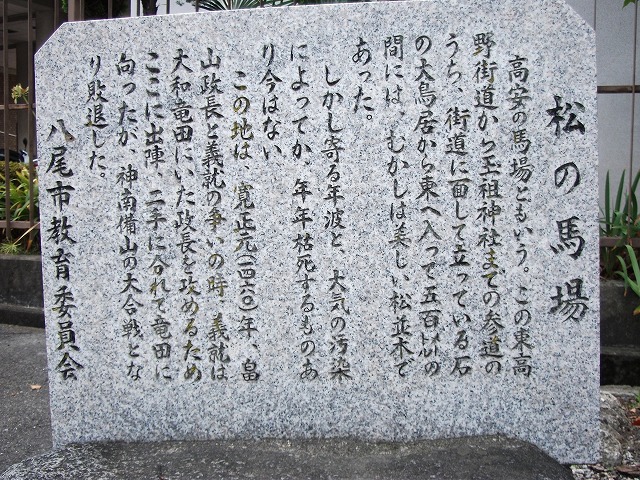 松の馬場
高安の馬場ともいう。この東高
野街道から玉祖神社までの参道の
うち、街道に面して立っている石
の大鳥居から東へ入って五百メートルの
間には、むかしは美しい松並木で
あった。
しかし寄る年波と、大気の汚染
によってか、年年枯死するものあ
り今はない
この地は、寛正元(一四六〇)年、畠
山政長と義就の争いの時、義就は
大和竜田にいた政長を攻めるため
ここに出陣、二手に分れて竜田に
向ったが、神南備山の大合戦とな
り敗退した。
八尾市教育委員会